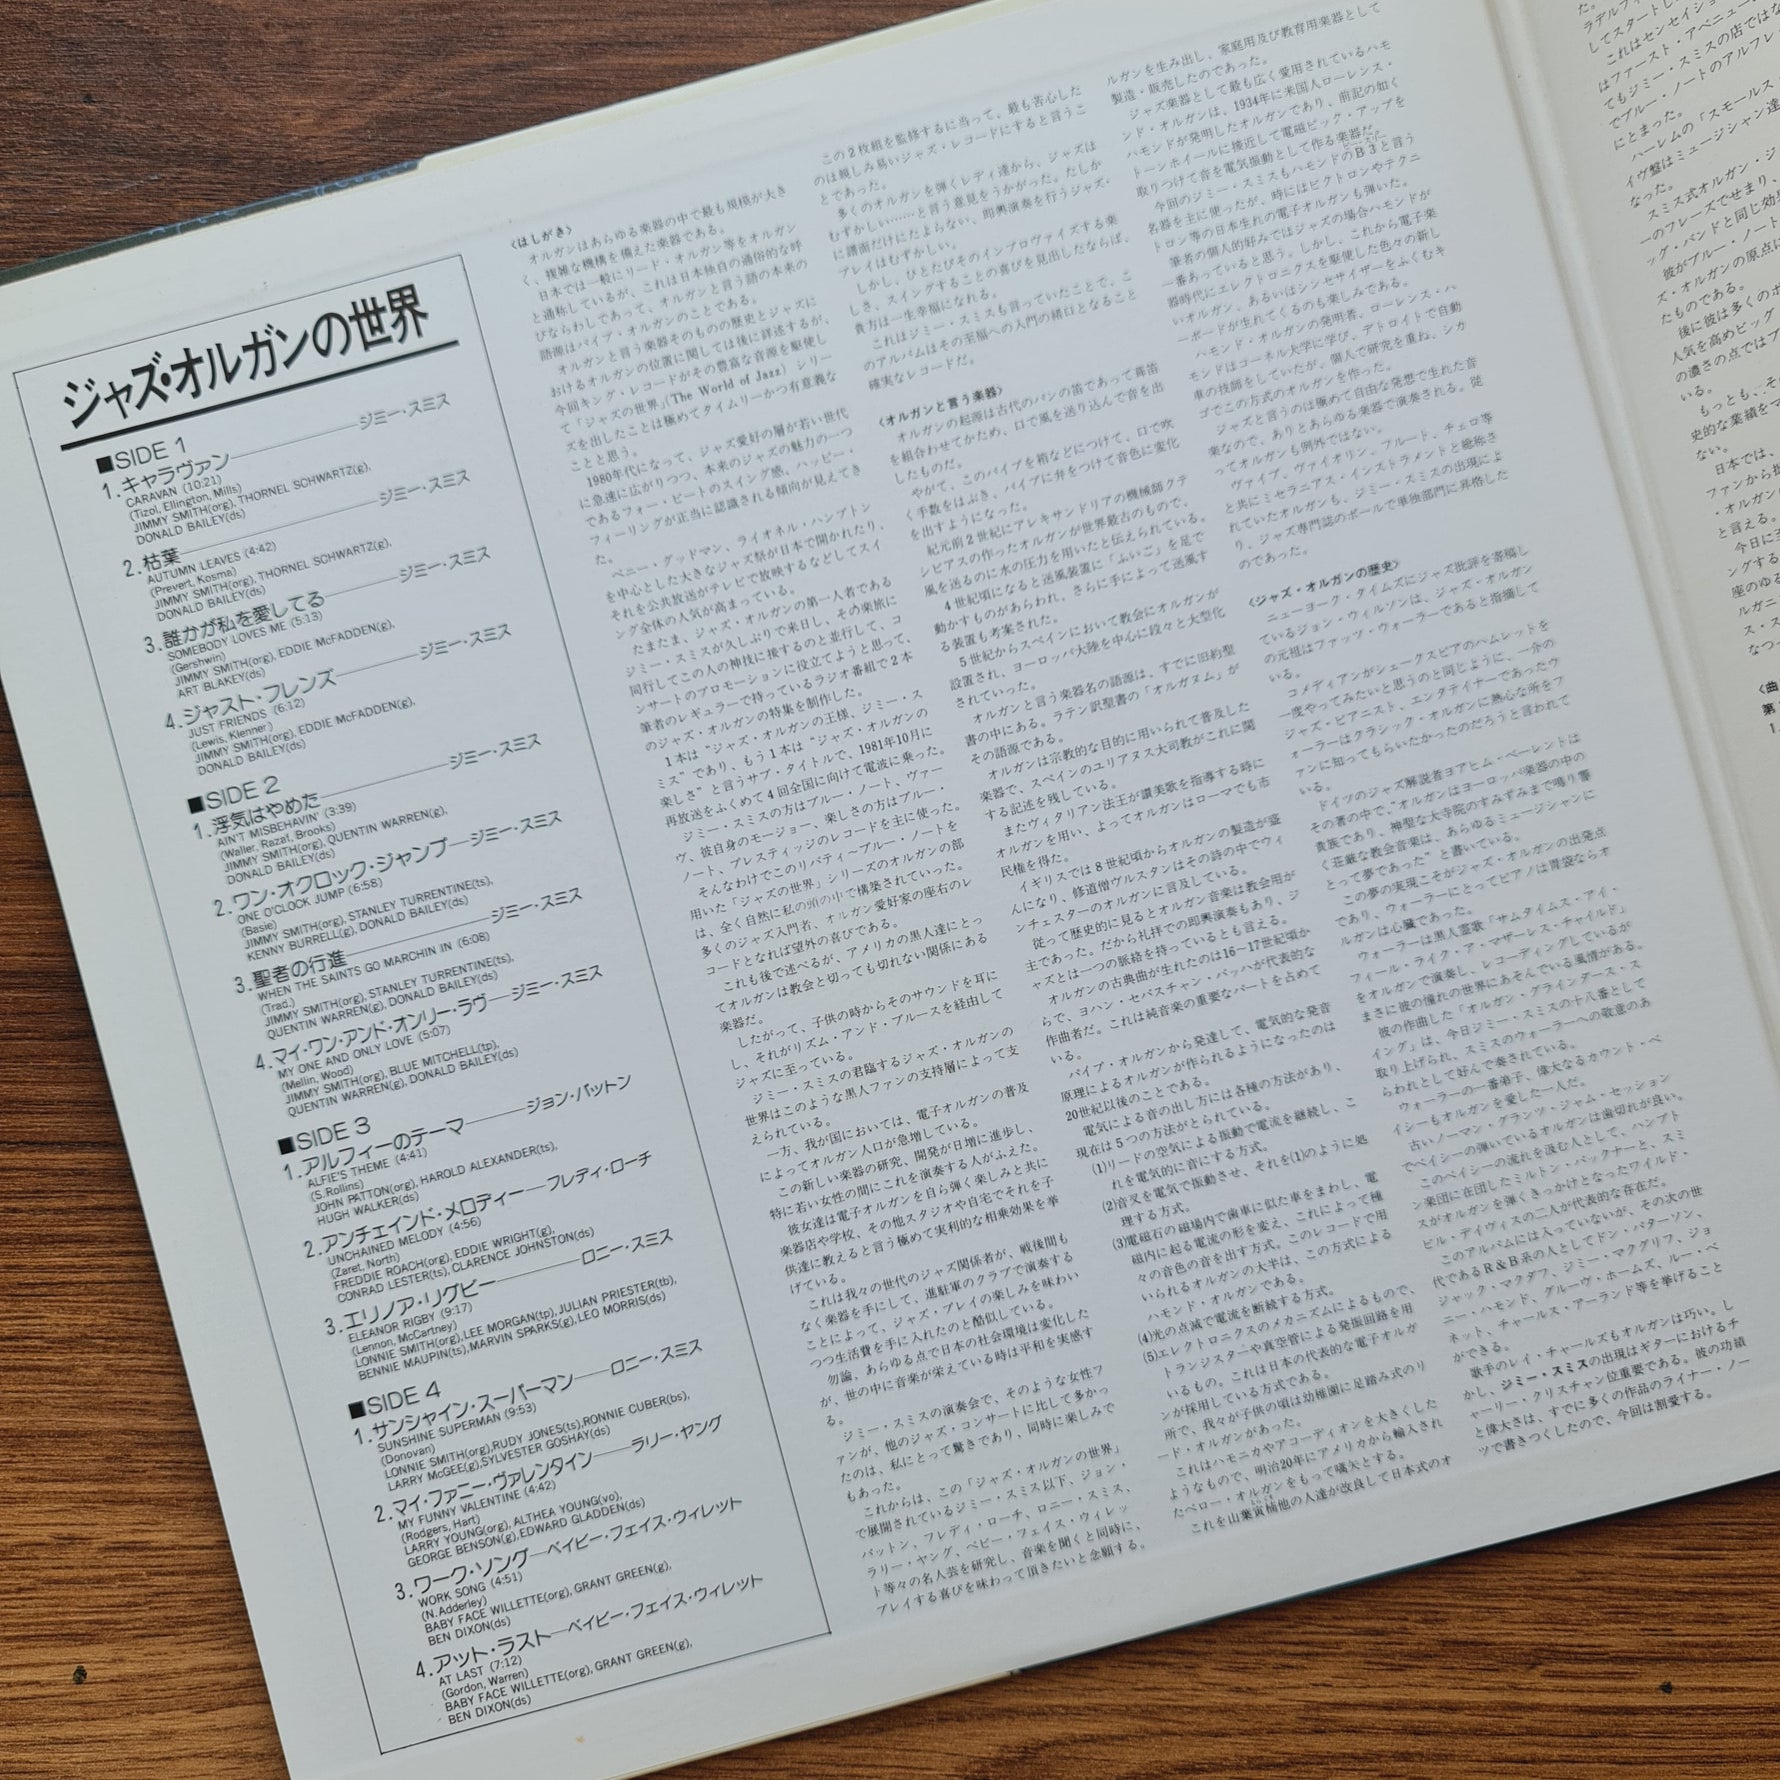 ジャズ・オルガンの世界
■SIDE 1
1.キャラヴァン――ジミー・スミス
CARAVAN (10:21)
(Tizol, Ellington, Mills)
JIMMY SMITH(org), THORNEL SCHWARTZ(g),
DONALD BAILEY(ds)
2.枯葉――ジミー・スミス
AUTUMN LEAVES (4:42)
(Prevert, Kosma)
JIMMY SMITH(org), THORNEL SCHWARTZ(g),
DONALD BAILEY(ds)
3.誰かが私を愛してる――ジミー・スミス
SOMEBODY LOVES ME (5:13)
(Gershwin)
JIMMY SMITH(org), EDDIE McFADDEN(g),
ART BLAKEY(ds)
4.ジャスト・フレンズ――ジミー・スミス
JUST FRIENDS (6:12)
(Lewis, Klenner)
JIMMY SMITH(org), EDDIE McFADDEN(g),
DONALD BAILEY(ds)
■SIDE 2
1.浮気はやめた――ジミー・スミス
AIN'T MISBEHAVIN' (3:39)
(Waller, Razaf, Brooks)
JIMMY SMITH(org), QUENTIN WARREN(g),
DONALD BAILEY(ds)
2.ワン・オクロック・ジャンプ――ジミー・スミス
ONE O'CLOCK JUMP (6:58)
(Basie)
JIMMY SMITH(org), STANLEY TURRENTINE(ts),
KENNY BURRELL(g), DONALD BAILEY(ds)
3.聖者の行進――ジミー・スミス
WHEN THE SAINTS GO MARCHIN IN (6:08)
(Trad.)
JIMMY SMITH(org), STANLEY TURRENTINE(ts),
QUENTIN WARREN(g), DONALD BAILEY(ds)
4.マイ・ワン・アンド・オンリー・ラヴ――ジミー・スミス
MY ONE AND ONLY LOVE (5:07)
(Mellin, Wood)
JIMMY SMITH(org), BLUE MITCHELL(tp),
QUENTIN WARREN(g), DONALD BAILEY(ds)
■SIDE 3
1.アルフィーのテーマ――ジョン・パットン
ALFIE'S THEME (4:41)
(S.Rollins)
JOHN PATTON(org), HAROLD ALEXANDER(ts),
HUGH WALKER(ds)
2.アンチェインド・メロディー――フレディ・ローチ
UNCHAINED MELODY (4:56)
(Zaret, North)
FREDDIE ROACH(org), EDDIE WRIGHT(g),
CONRAD LESTER(ts), CLARENCE JOHNSTON(ds)
3.エリノア・リグビー――ロニー・スミス
ELEANOR RIGBY (9:17)
(Lennon, McCartney)
LONNIE SMITH(org), LEE MORGAN(tp), JULIAN PRIESTER(tb),
BENNIE MAUPIN(ts), MARVIN SPARKS(g), LEO MORRIS(ds)
■SIDE 4
1.サンシャイン・スーパーマン――ロニー・スミス
SUNSHINE SUPERMAN (9:53)
(Donovan)
LONNIE SMITH(org),RUDY JONES(ts),RONNIE CUBER(bs),
LARRY McGEE(g),SYLVESTER GOSHAY(ds)
2.マイ・ファニー・ヴァレンタイン――ラリー・ヤング
MY FUNNY VALENTINE (4:42)
(Rodgers, Hart)
LARRY YOUNG(org), ALTHEA YOUNG(vo),
GEORGE BENSON(g), EDWARD GLADDEN(ds)
3.ワーク・ソング――ベイビー・フェイス・ウィレット
WORK SONG (4:51)
(N.Adderley)
BABY FACE WILLETTE(org), GRANT GREEN(g),
BEN DIXON(ds)
4.アット・ラスト――ベイビー・フェイス・ウィレット
AT LAST (7:12)
(Gordon, Warren)
BABY FACE WILLETTE(org), GRANT GREEN(g),
BEN DIXON(ds)
〈はしがき〉
オルガンはあらゆる楽器の中で最も規模が大き
く、複雑な機構を備えた楽器である。
日本では一般にリード・オルガン等をオルガン
と通称しているが、これは日本独自の通俗的な呼
びならわしであって、オルガンと言う語の本来の
語源はパイプ・オルガンのことである。
オルガンと言う楽器そのものの歴史とジャズに
おけるオルガンの位置に関しては後に詳述するが、
今回キング・レコードがその豊富な音源を駆使し
て「ジャズの世界」(The World of Jazz) シリー
ズを出したことは極めてタイムリーかつ有意義な
ことと思う。
1980年代になって、ジャズ愛好の層が若い世代
に急速に広がりつつ、本来のジャズの魅力の一つ
であるフォー・ビートのスイング感、ハッピー・
フィーリングが正当に認識される傾向が見えてき
た。
ベニー・グッドマン、ライオネル・ハンプトン
を中心とした大きなジャズ祭が日本で開かれたり、
それを公共放送がテレビで放映するなどしてスイ
ング全体の人気が高まっている。
たまたま、ジャズ・オルガンの第一人者である
ジミー・スミスが久しぶりで来日し、その楽旅に
同行してこの人の神技に接するのと並行して、コ
ンサートのプロモーションに役立てようと思って、
筆者のレギュラーで持っているラジオ番組で2本
のジャズ・オルガンの特集を制作した。
1本は“ジャズ・オルガンの王様、ジミー・ス
ミス”であり、もう1本は“ジャズ・オルガンの
楽しさ”と言うサブ・タイトルで、1981年10月に
再放送をふくめて4回全国に向けて電波に乗った。
ジミー・スミスの方はブルー・ノート、ヴァー
ヴ、彼自身のモージョー、楽しさの方はブルー・
ノート、プレスティッジのレコードを主に使った。
そんなわけでこのリバティ〜ブルー・ノートを
用いた「ジャズの世界」シリーズのオルガンの部
は、全く自然に私の頭の中で構築されていった。
多くのジャズ入門者、オルガン愛好家の座右のレ
コードとなれば望外の喜びである。
これも後で述べるが、アメリカの黒人達にとっ
てオルガンは教会と切っても切れない関係にある
楽器だ。
したがって、子供の時からそのサウンドを耳に
し、それがリズム・アンド・ブルースを経由して
ジャズに至っている。
ジミー・スミスの君臨するジャズ・オルガンの
世界はこのような黒人ファンの支持層によって支
えられている。
一方、我が国においては、電子オルガンの普及
によってオルガン人口が急増している。
この新しい楽器の研究、開発が日増に進歩し、
特に若い女性の間にこれを演奏する人がふえた。
彼女達は電子オルガンを自ら弾く楽しみと共に
楽器店や学校、その他スタジオや自宅でそれを子
供達に教えると言う極めて実利的な相乗効果を挙
げている。
これは我々の世代のジャズ関係者が、戦後間も
なく楽器を手にして、進駐軍のクラブで演奏する
ことによって、ジャズ・プレイの楽しみを味わい
つつ生活費を手に入れたのと酷似している。
勿論、あらゆる点で日本の社会環境は変化した
が、世の中に音楽が栄えている時は平和を実感す
る。
ジミー・スミスの演奏会で、そのような女性フ
ァンが、他のジャズ・コンサートに比して多かっ
たのは、私にとって驚きであり、同時に楽しみで
もあった。
これからは、この「ジャズ・オルガンの世界」
で展開されているジミー・スミス以下、ジョン・
パットン、フレディ・ローチ、ロニー・スミス、
ラリー・ヤング、ベビー・フェイス・ウィレッ
ト等々の名人芸を研究し、音楽を聞くと同時に、
プレイする喜びを味わって頂きたいと念願する。
この2枚組を監修するに当って、最も苦心した
のは親しみ易いジャズ・レコードにすると言うこ
とであった。
多くのオルガンを弾くレディ達から、ジャズは
むずかしい……と言う意見をうかがった。たしか
に譜面だけにたよらない、即興演奏を行うジャズ・
プレイはむずかしい。
しかし、ひとたびそのインプロヴァイズする楽
しさ、スイングすることの喜びを見出したならば、
貴方は一生幸福になれる。
これはジミー・スミスも言っていたことで、こ
のアルバムはその至福への入門の緒口となること
確実なレコードだ。
〈オルガンと言う楽器〉
オルガンの起源は古代のパンの笛であって葦笛
を組合わせてかため、口で風を送り込んで音を出
したものだ。
やがて、このパイプを箱などにつけて、口で吹
く手数をはぶき、パイプに弁をつけて音色に変化
を出すようになった。
紀元前2世紀にアレキサンドリアの機械師クテ
シビアスの作ったオルガンが世界最古のもので、
風を送るのに水の圧力を用いたと伝えられている。
4世紀頃になると送風装置に「ふいご」を足で
動かすものがあらわれ、さらに手によって送風す
る装置も考案された。
5世紀からスペインにおいて教会にオルガンが
設置され、ヨーロッパ大陸を中心に段々と大型化
されていった。
オルガンと言う楽器名の語源は、すでに旧約聖
書の中にある。ラテン訳聖書の「オルガヌム」が
その語源である。
オルガンは宗教的な目的に用いられて普及した
楽器で、スペインのユリアヌス大司教がこれに関
する記述を残している。
またヴィタリアン法王が讃美歌を指導する時に
オルガンを用い、よってオルガンはローマでも市
民権を得た。
イギリスでは8世紀頃からオルガンの製造が盛
んになり、修道僧ヴルスタンはその詩の中でウィ
ンチェスターのオルガンに言及している。
従って歴史的に見るとオルガン音楽は教会用が
主であった。だから礼拝での即興演奏もあり、ジ
ャズとは一つの脈絡を持っているとも言える。
オルガンの古典曲が生れたのは16〜17世紀頃か
らで、ヨハン・セバスチャン・バッハが代表的な
作曲者だ。これは純音楽の重要なパートを占めて
いる。
パイプ・オルガンから発達して、電気的な発音
原理によるオルガンが作られるようになったのは
20世紀以後のことである。
電気による音の出し方には各種の方法があり、
現在は5つの方法がとられている。
(1)リードの空気による振動で電流を継続し、こ
れを電気的に音にする方式。
(2)音叉を電気で振動させ、それを(1)のように処
理する方式。
(3)電磁石の磁場内で歯車に似た車をまわし、電
磁内に起る電流の形を変え、これによって種
々の音色の音を出す方式。このレコードで用
いられるオルガンの大半は、この方式による
ハモンド・オルガンである。
(4)光の点滅で電流を断続する方式。
(5)エレクトロニクスのメカニズムによるもので、
トランジスターや真空管による発振回路を用
いるもの。これは日本の代表的な電子オルガ
ンが採用している方式である。
所で、我々が子供の頃は幼稚園に足踏み式のリ
ード・オルガンがあった。
これはハモニカやアコーディオンを大きくした
ようなもので、明治20年にアメリカから輸入され
たベロー・オルガンをもって嚆矢とする。
これを山葉寅楠他の人達が改良して日本式のオ
ルガンを生み出し、家庭用及び教育用楽器として
製造・販売したのであった。
ジャズ楽器として最も広く愛用されているハモ
ンド・オルガンは、1934年に米国人ローレンス・
ハモンドが発明したオルガンであり、前記の如く
トーンホイールに接近して電磁ピック・アップを
取りつけて音を電気振動として作る楽器だ。
今回のジミー・スミスもハモンドのB3と言う
名器を主に使ったが、時にはビクトロンやテクニ
トロン等の日本生れの電子オルガンも弾いた。
筆者の個人的好みではジャズの場合ハモンドが
一番あっていると思う。しかし、これから電子楽
器時代にエレクトロニクスを駆使した色々の新し
いオルガン、あるいはシンセサイザーをふくむキ
ーボードが生れてくるのも楽しみである。
ハモンド・オルガンの発明者、ローレンス・ハ
モンドはコーネル大学に学び、デトロイトで自動
車の技師をしていたが、個人で研究を重ね、シカ
ゴでこの方式のオルガンを作った。
ジャズと言うのは極めて自由な発想で生れた音
楽なので、ありとあらゆる楽器で演奏される。従
ってオルガンも例外ではない。
ヴァイブ、ヴァイオリン、フルート、チェロ等
と共にミセラニアス・インストラメントと総称さ
れていたオルガンも、ジミー・スミスの出現によ
り、ジャズ専門誌のポールで単独部門に昇格した
のであった。
〈ジャズ・オルガンの歴史〉
ニューヨーク・タイムズにジャズ批評を寄稿し
ているジョン・ウィルソンは、ジャズ・オルガン
の元祖はファッツ・ウォーラーであると指摘して
いる。
コメディアンがシェークスピアのハムレットを
一度やってみたいと思うのと同じように、一介の
ジャズ・ピアニスト、エンタテイナーであったウ
ォーラーはクラシック・オルガンに熱心な所をフ
ァンに知ってもらいたかったのだろうと言われて
いる。
ドイツのジャズ解説者ヨアヒム・ベーレントは
その著の中で、“オルガンはヨーロッパ楽器の中の
貴族であり、神聖な大寺院のすみずみまで鳴り響
く荘厳な教会音楽は、あらゆるミュージシャンに
とって夢であった”と書いている。
この夢の実現こそがジャズ・オルガンの出発点
であり、ウォーラーにとってピアノは胃袋ならオ
ルガンは心臓であった。
ウォーラーは黒人霊歌「サムタイムス・アイ・
フィール・ライク・ア・マザーレス・チャイルド」
をオルガンで演奏し、レコーディングしているが
まさに彼の憧れの世界にあそんでいる風情がある。
彼の作曲した「オルガン・グラインダース・ス
イング」は、今日ジミー・スミスの十八番として
取り上げられ、スミスのウォーラーへの敬意のあ
らわれとして好んで奏されている。
ウォーラーの一番弟子、偉大なるカウント・ベ
イシーもオルガンを愛した一人だ。
古いノーマン・グランツ・ジャム・セッション
でベイシーの弾いているオルガンは歯切れが良い。
このベイシーの流れを汲む人として、ハンプト
ン楽団に在団したミルトン・バックナーと、スミ
スがオルガンを弾くきっかけとなったワイルド・
ビル・デイヴィスの二人が代表的な存在だ。
このアルバムには入っていないが、その次の世
代であるR&B系の人としてドン・パターソン、
ジャック・マクダフ、ジミー・マクグリフ、ジョ
ニー・ハモンド、グルーヴ・ホームズ、ルー・ベ
ネット、チャールス・アーランド等を挙げること
ができる。
歌手のレイ・チャールズもオルガンは巧い。し
かし、ジミー・スミスの出現はギターにおけるチ
ャーリー・クリスチャン位重要である。彼の功績
と偉大さは、すでに多くの作品のライナー・ノー
ツで書きつくしたので、今回は割愛する。
た。
してスタートし
これはセンセイショ
はファースト・アベニュー
てもジミー・スミスの店ではな
でブルー・ノートのアルフレ
にとまった。
ハーレムの「スモールス
イヴ盤はミュージシャン達
なった。
スミス式オルガン・ジ
ーのフレーズでせまり、
ッグ・バンドと同じ効
彼がブルー・ノート
ズ・オルガンの原点
たものである。
後に彼は多くのボ
人気を高めビッグ
の濃さの点ではブ
いる。
もっとも、そ
史的な業績をマ
ない。
日本では、
ファンから
・オルガン
と言える。
今日に
ングする
座のゆる
ルガニ
ス・ス
なつ
〈曲
第
1.